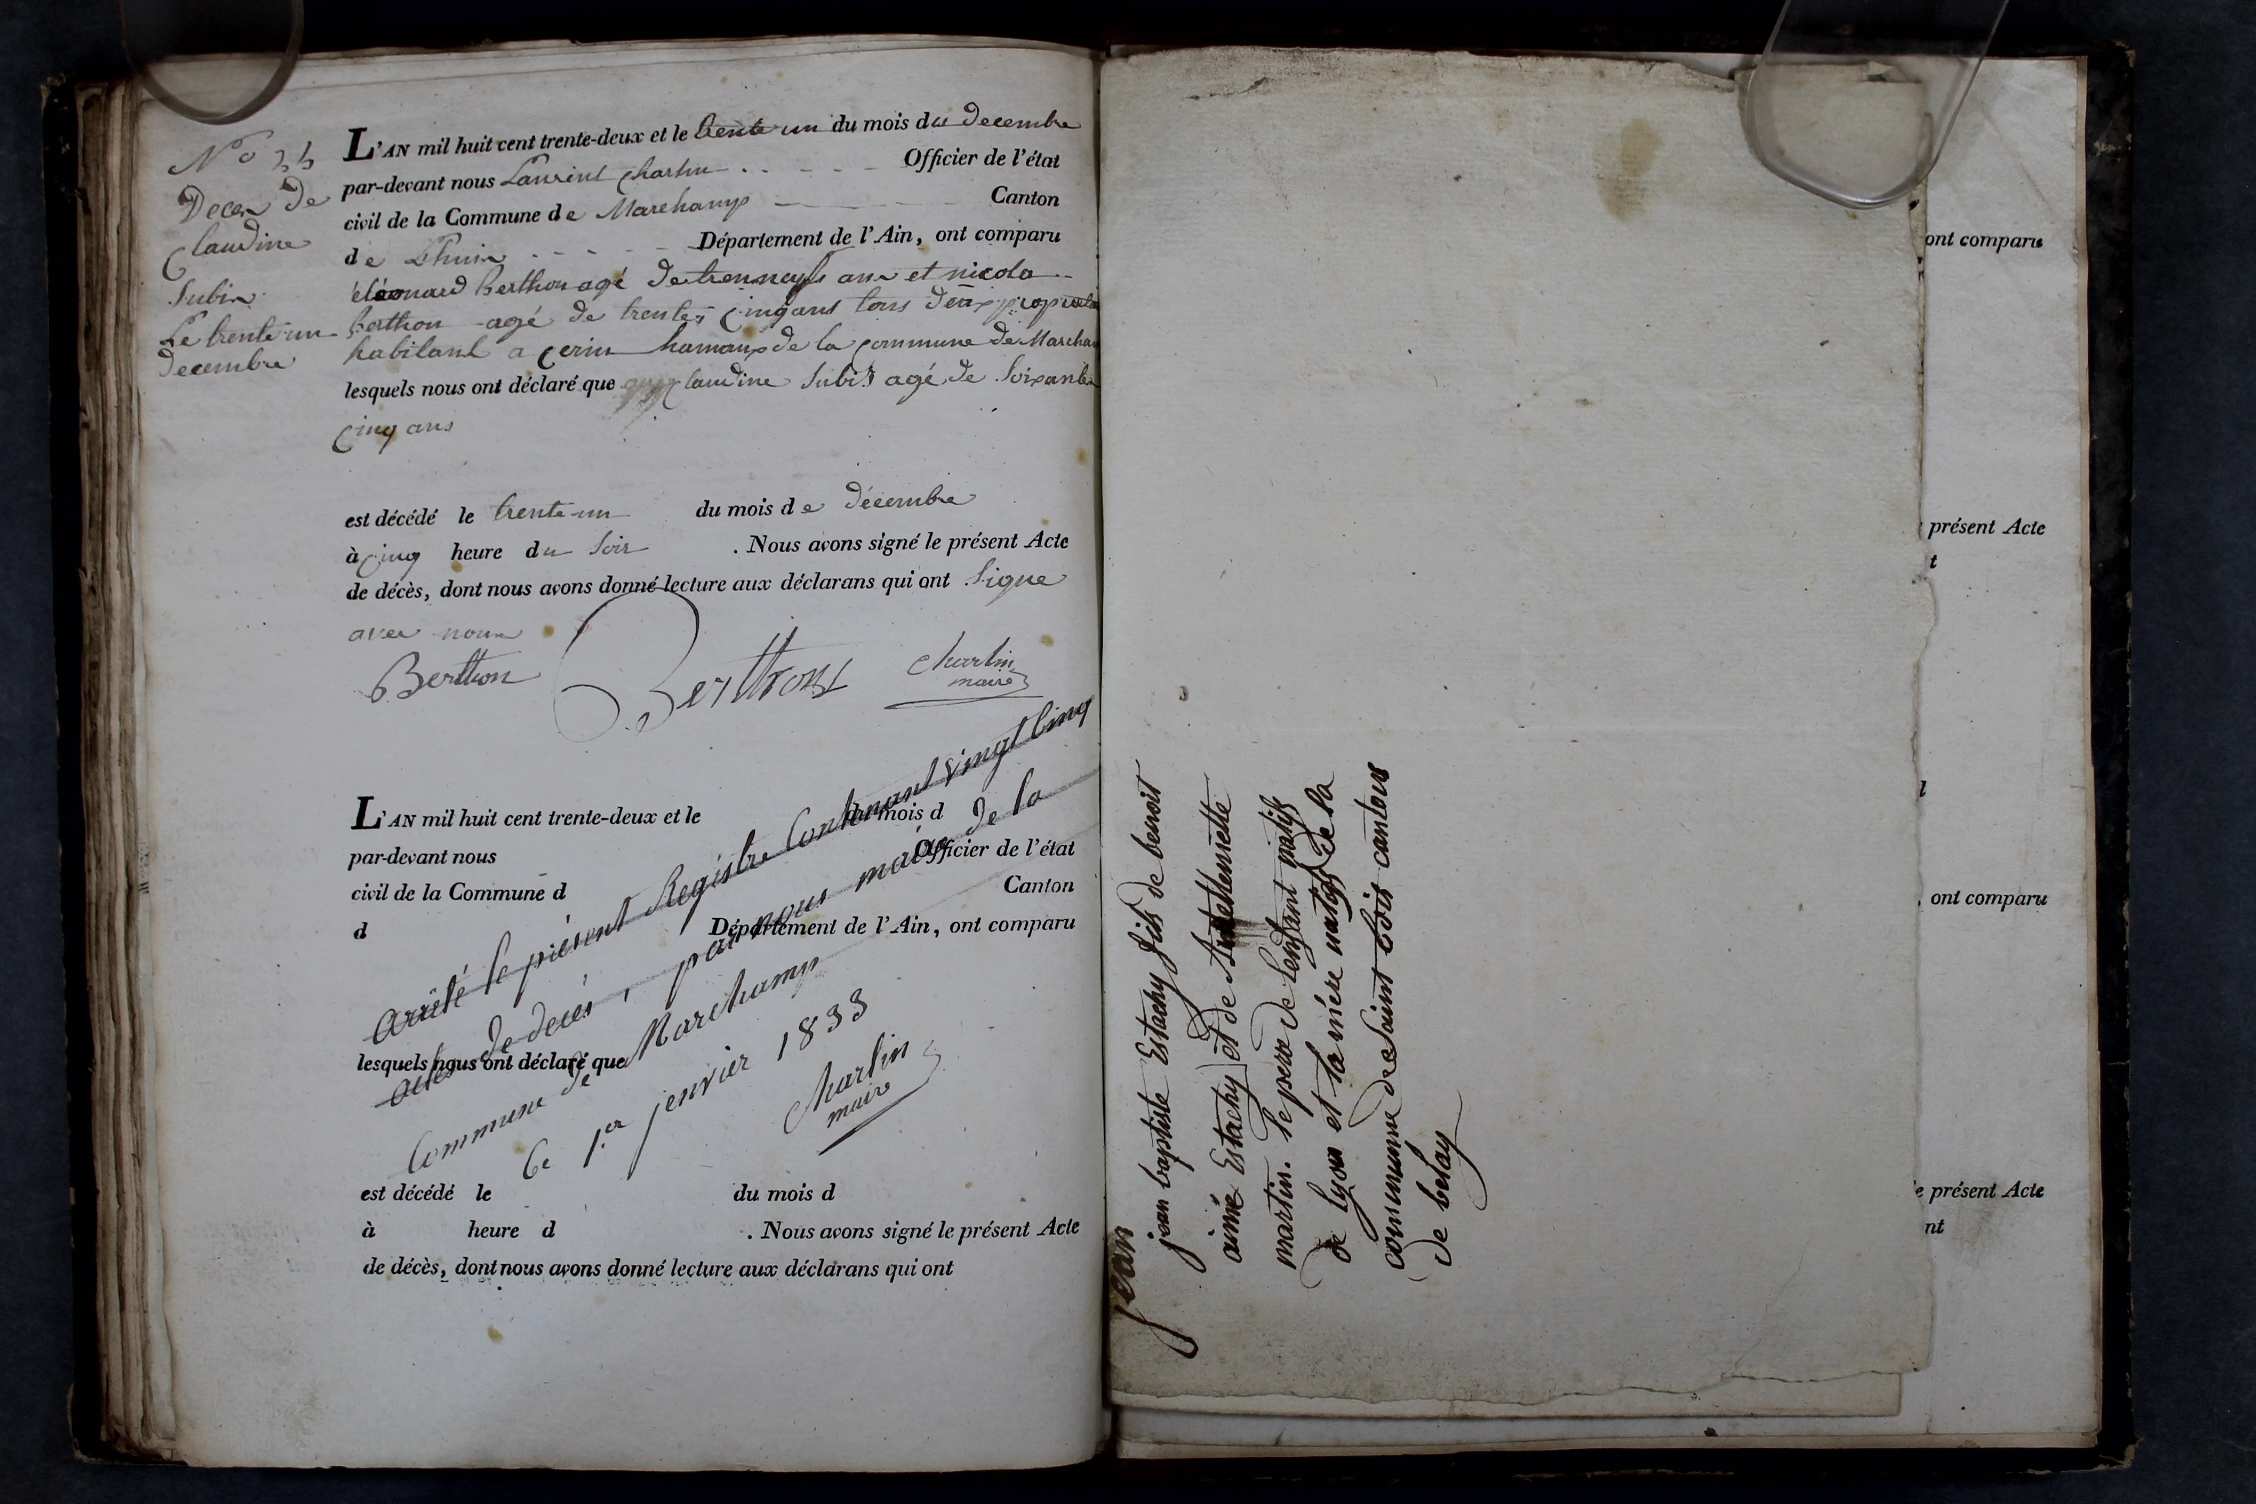 N° 25
Deces de
Claudine
Subit
Le trente-un
decembre
L'AN mil huit cent trente-deux et le trente-un du mois du decembre
par-devant nous Laurent Charlin Officier de l'état
civil de la Commune de Marchamp Canton
de Lhuis Département de l'Ain, ont comparu
éléonard Berthon agé de trenneufs ans et nicola
Berthon agé de trente-cinq ans tous deux proprieta
habitant a Cerin hamaux de la commune de Marcham
lesquels nous ont déclaré que Claudine Subit agé de Soixante
Cinq ans
est décédé le trente-un du mois de décembre
à Cinq heure du Soir . Nous avons signé le présent Acte
de décès, dont nous avons donné lecture aux déclarans qui ont Signe
avec nous
Berthon Berthon Charlin
maire
L'AN mil huit cent trente-deux et le du mois d
par-devant nous Officier de l'état
civil de la Commune d Canton
d Département de l'Ain, ont comparu
lesquels nous ont déclaré que
est décédé le du mois d
à heure d . Nous avons signé le présent Acte
de décès, dont nous avons donné lecture aux déclarans qui ont
arrêté le présent Registre Contenant vingt Cinq
actes de décès, par nous maire de la
Commune de Marchamp
Ce 1.er jenvier 1833
Charlin
maire
Jean
jean baptiste Estachy fils de benoit
aimé Estachy et de Antethemette
martin. le pere de lenfant natif
de lyon et la mére natif de la
commune de Saint bois cantous
de belay
ont comparu
présent Acte
t
l
, ont comparu
e présent Acte
nt